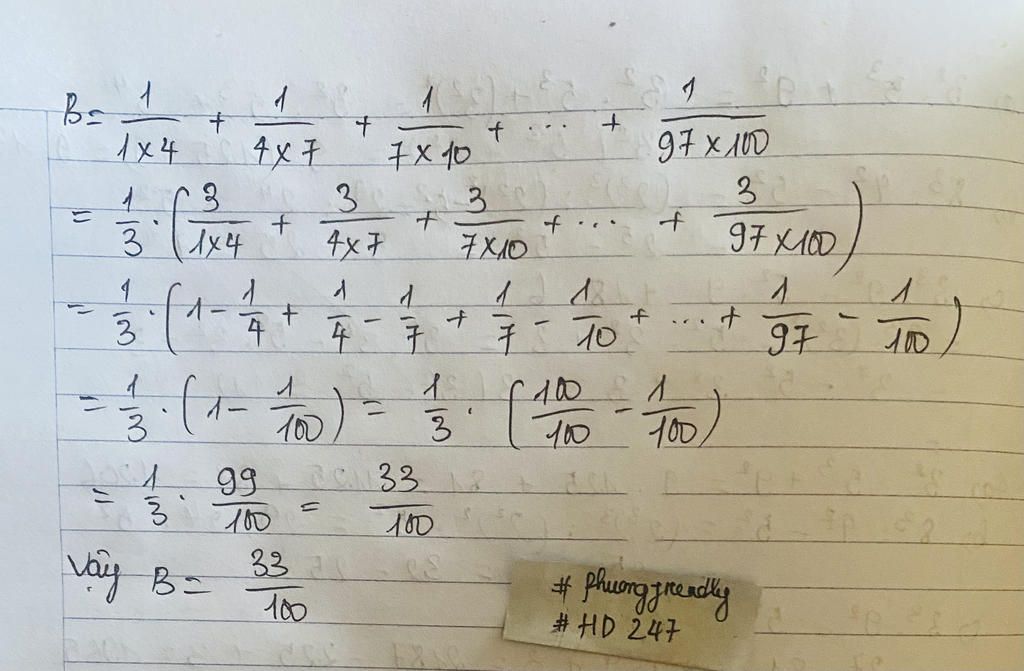 B = 1/(1×4) + 1/(4×7) + 1/(7×10) + ... + 1/(97×100)
= 1/3 · (3/(1×4) + 3/(4×7) + 3/(7×10) + ... + 3/(97×100))
= 1/3 · (1 - 1/4 + 1/4 - 1/7 + 1/7 - 1/10 + ... + 1/97 - 1/100)
= 1/3 · (1 - 1/100) = 1/3 · (100/100 - 1/100)
= 1/3 · 99/100 = 33/100
Vậy B = 33/100
# phuongfrendly
# HD 247